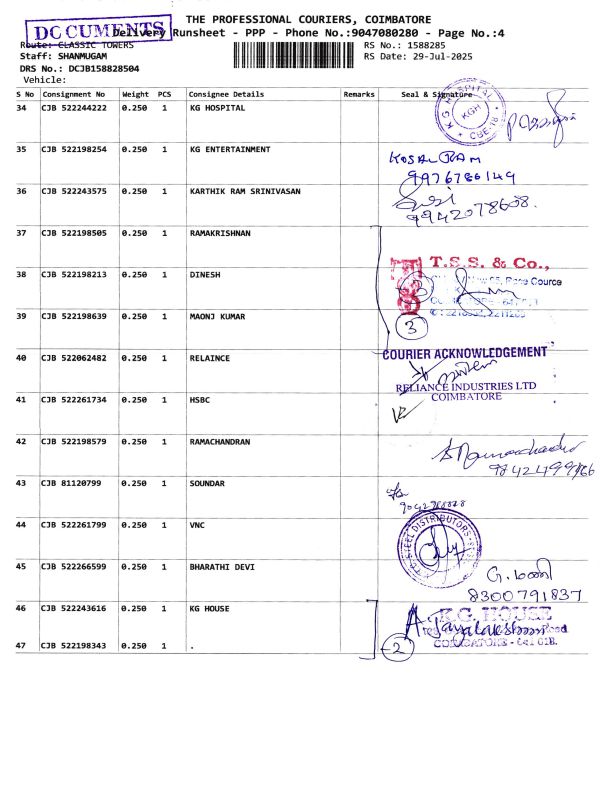 THE PROFESSIONAL COURIERS, COIMBATORE
DOCUMENTS
Delivery Runsheet - PPP - Phone No.:9047080280 - Page No.:4
Route: CLASSIC TOWERS
RS No.: 1588285
Staff: SHANMUGAM
RS Date: 29-Jul-2025
DRS No.: DCJB158828504
Vehicle:
S No Consignment No Weight PCS Consignee Details Remarks Seal & Signature
34 CJB 522244222 0.250 1 KG HOSPITAL
KG HOSPITAL KGH CBE-18
35 CJB 522198254 0.250 1 KG ENTERTAINMENT
KOSAL RAM
9976786149
36 CJB 522243575 0.250 1 KARTHIK RAM SRINIVASAN
9942078608.
37 CJB 522198505 0.250 1 RAMAKRISHNAN
T.S.S. & Co.,
38 CJB 522198213 0.250 1 DINESH
Race Cource
39 CJB 522198639 0.250 1 MAONJ KUMAR
3
40 CJB 522062482 0.250 1 RELAINCE
COURIER ACKNOWLEDGEMENT
RELIANCE INDUSTRIES LTD
COIMBATORE
41 CJB 522261734 0.250 1 HSBC
42 CJB 522198579 0.250 1 RAMACHANDRAN
43 CJB 81120799 0.250 1 SOUNDAR
44 CJB 522261799 0.250 1 VNC
STEEL DISTRIBUTORS
45 CJB 522266599 0.250 1 BHARATHI DEVI
G. மணி
8300791837
46 CJB 522243616 0.250 1 KG HOUSE
K.G. HOUSE
47 CJB 522198343 0.250 1 .
2